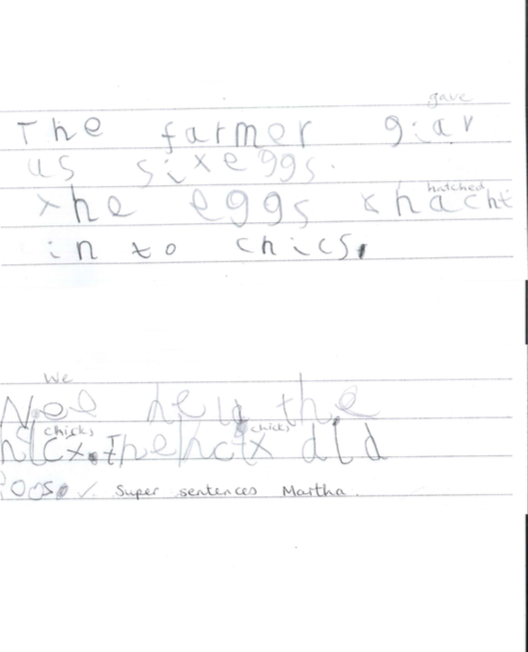 gave
The farmer giav
us six eggs.
hatched
the eggs hacht
in to chics.
We
help the
chicks chicks
did
Super sentences Martha.